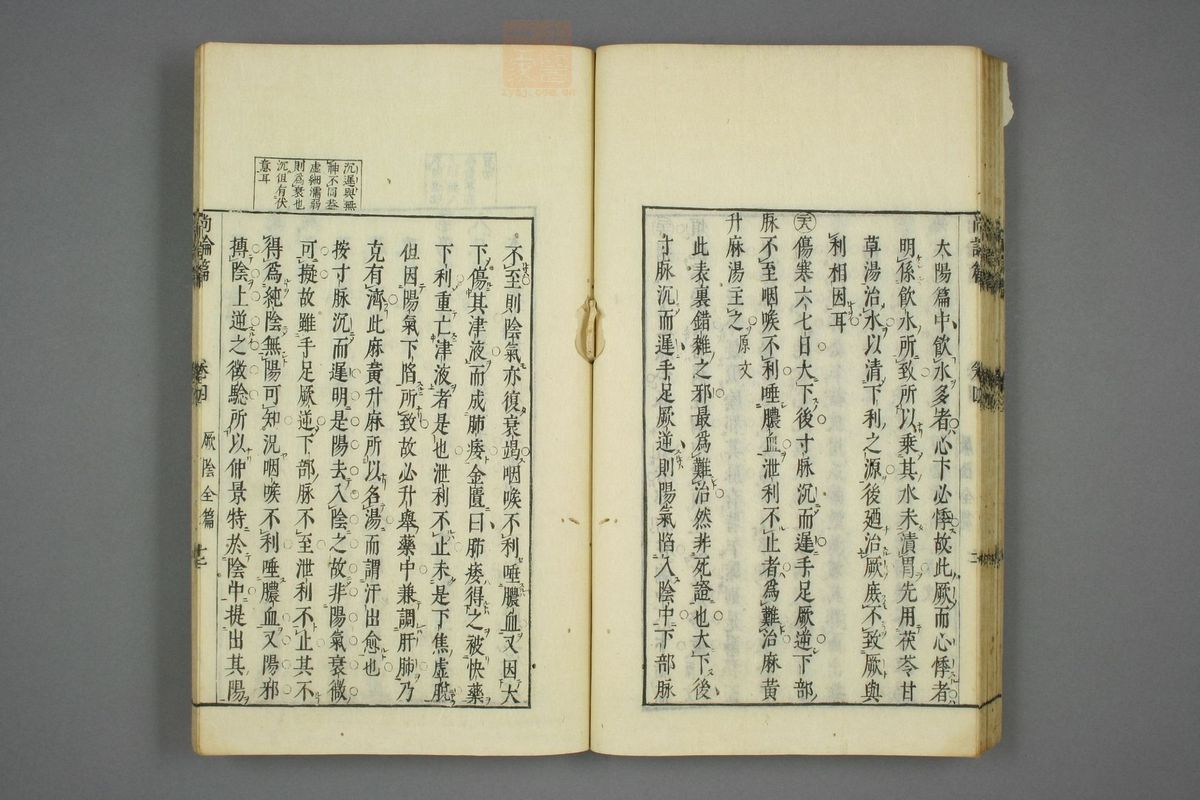 太陽篇中飲水多者心下必悸故此厥而心悸者
明係飲水所致所以乗其水未漬胃先用茯苓甘
草湯治水以清下利之源後廼治厥庶不致厥與
利相因耳
傷寒六七日大下後寸脉沉而遲手足厥逆下部
脉不至咽喉不利唾膿血泄利不止者爲難治麻黄
升麻湯主之原文
此表裏錯雜之邪最爲難治然非死證也大下後
寸脉沉而遲手足厥逆則陽氣陷入陰中下部脉
不至則陰氣亦復衰竭咽喉不利唾膿血又因大
下傷其津液而成肺痿金匱曰肺痿得之被快藥
下利重亡津液者是也泄利不止未是下焦虚脱
但因陽氣下陷所致故必升舉藥中兼調肝肺乃
克有濟此麻黄升麻所以名湯而謂汗出愈也
按寸脉沉而遲明是陽去入陰之故非陽氣衰微
可擬故雖手足厥逆下部脉不至泄利不止其不
得爲純陰無陽可知況咽喉不利唾膿血又陽邪
摶陰上逆之徴驗所以仲景特於陰中提出其陽
沉遲與無
神不同葢
虚細濡弱
則爲衰也
沉但有伏
意耳
尚論篇 卷四 厥陰全篇 十二